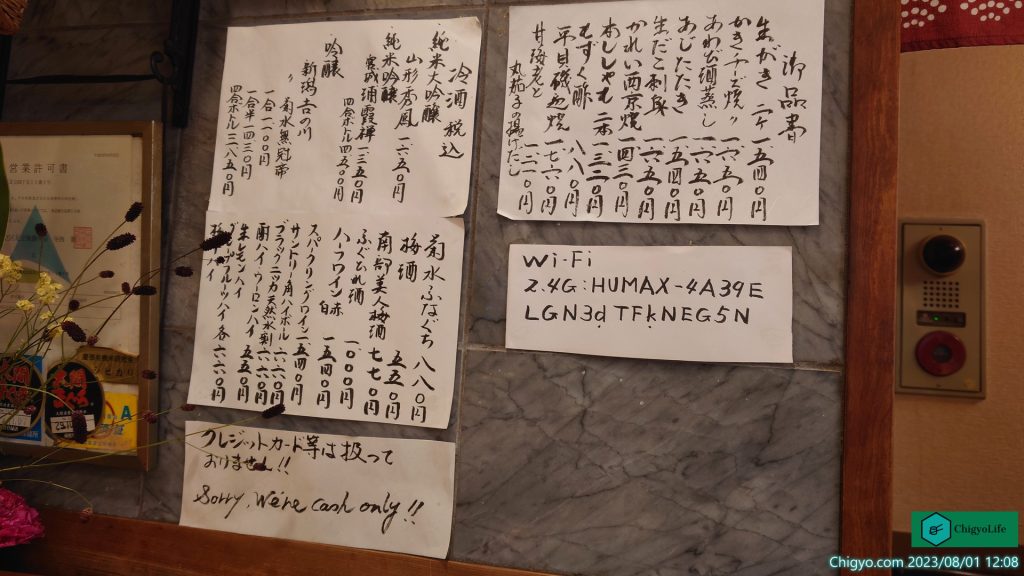 御品書
生がき 二ケ 一五四〇円
かきチーズ焼〃 一六五〇円
あわび酒蒸し 一六五〇円
あじたたき 一五四〇円
生だこ刺身 一六五〇円
かれい西京焼 一四三〇円
本ししゃも 二本 一三二〇円
もずく酢 八八〇円
平目磯辺焼 一七六〇円
丸茄子の揚げだし 一二一〇円
冷酒 税込
純米大吟醸
山形秀鳳 一六五〇円
純米吟醸
宮城浦霞禅 一三五〇円
四合ボトル 四五〇〇円
吟醸
新潟吉乃川
〃 菊水無冠帝
一合 一一〇〇円
一合半 一四三〇円
四合ボトル 三八五〇円
菊水ふなぐち 八八〇円
梅酒 五五〇円
南部美人梅酒 七七〇円
ふぐひれ酒 一一〇〇円
ハーフワイン 赤 白 一五四〇円
スパークリングワイン 一五四〇円
サントリー角ハイボール 六六〇円
ブラックニッカ天然水割 六六〇円
酎ハイ・ウーロンハイ 五五〇円
生レモンハイ
グレープフルーツハイ 各 六六〇円
梅干ハイ
Wi-Fi
2.4G:HUMAX-4A39E
LGN3dTFkNEG5N
クレジットカード等は扱って
おりません!!
Sorry, We're cash only!!
営業許可書
ChigyoLife
Chigyo.com 2023/08/01 12:08